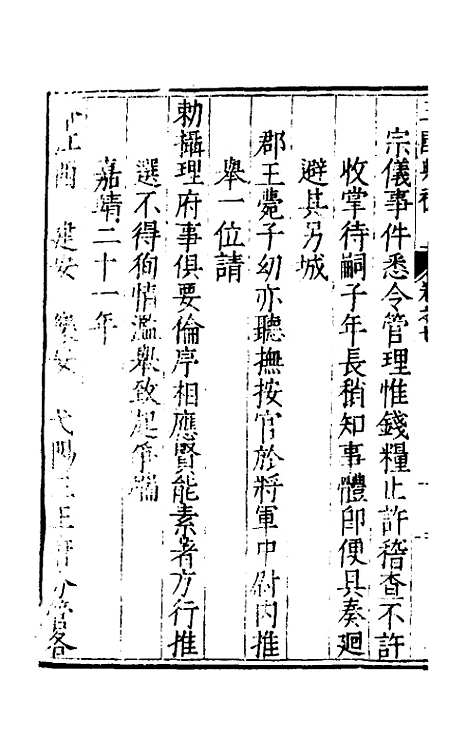 宗儀事件悉令管理惟錢糧止許稽查不許
收掌待嗣子年長稍知事體卽便具奏迴
避其另城
郡王薨子幼亦聽撫按官於將軍中尉内推
舉一位請
勅攝理府事俱要倫序相應賢能素著方行推
選不得狥情濫舉致起爭端
嘉靖二十一年
建安 樂安 弋陽三王府分管各